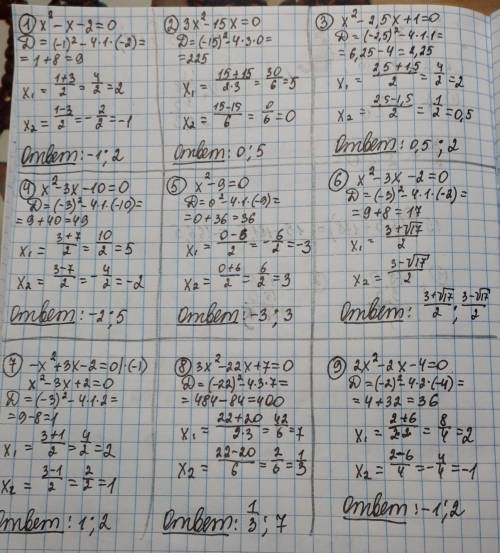 ① x²-x-2=0
D=(-1)²-4·1·(-2)=
=1+8=9
x₁= (1+3)/2 = 4/2 =2
x₂= (1-3)/2 = -2/2 =-1
Ответ: -1; 2
② 3x²-15x=0
D=(-15)²-4·3·0=
=225
x₁= (15+15)/(2·3) = 30/6 =5
x₂= (15-15)/6 = 0/6 =0
Ответ: 0; 5
③ x²-2,5x+1=0
D=(-2,5)²-4·1·1=
=6,25-4=2,25
x₁= (2,5+1,5)/2 = 4/2 =2
x₂= (2,5-1,5)/2 = 1/2 =0,5
Ответ: 0,5; 2
④ x²-3x-10=0
D=(-3)²-4·1·(-10)=
=9+40=49
x₁= (3+7)/2 = 10/2 =5
x₂= (3-7)/2 = -4/2 =-2
Ответ: -2; 5
⑤ x²-9=0
D=0²-4·1·(-9)=
=0+36=36
x₁= (0-6)/2 = -6/2 =-3
x₂= (0+6)/2 = 6/2 =3
Ответ: -3; 3
⑥ x²-3x-2=0
D=(-3)²-4·1·(-2)=
=9+8=17
x₁= (3+√17)/2
x₂= (3-√17)/2
Ответ: (3+√17)/2; (3-√17)/2
⑦ -x²+3x-2=0|·(-1)
x²-3x+2=0
D=(-3)²-4·1·2=
=9-8=1
x₁= (3+1)/2 = 4/2 =2
x₂= (3-1)/2 = 2/2 =1
Ответ: 1; 2
⑧ 3x²-22x+7=0
D=(-22)²-4·3·7=
=484-84=400
x₁= (22+20)/(2·3) = 42/6 =7
x₂= (22-20)/6 = 2/6 = 1/3
Ответ: 1/3; 7
⑨ 2x²-2x-4=0
D=(-2)²-4·2·(-4)=
=4+32=36
x₁= (2+6)/(2·2) = 8/4 =2
x₂= (2-6)/4 = -4/4 =-1
Ответ: -1; 2